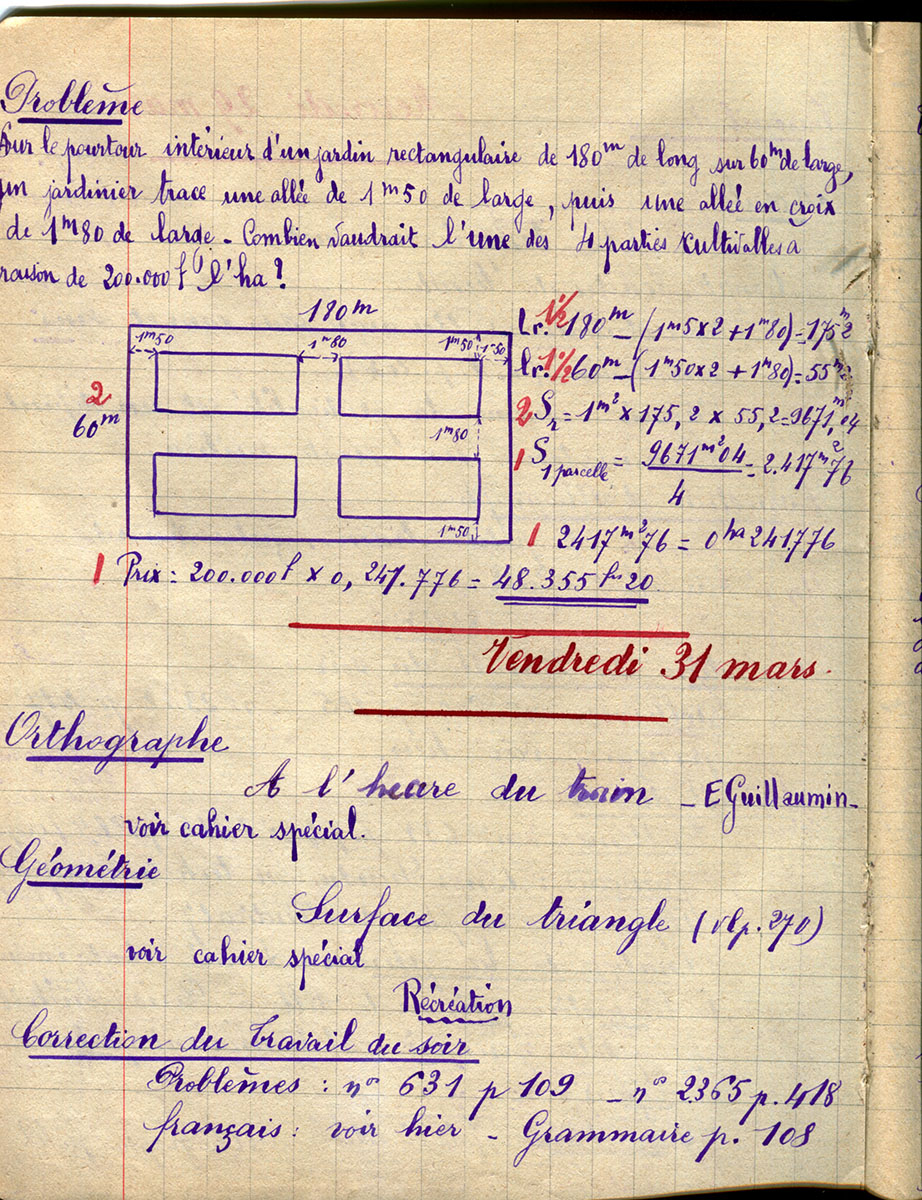 Problème
Sur le pourtour intérieur d'un jardin rectangulaire de 180m de long sur 60m de large,
un jardinier trace une allée de 1m50 de large, puis une alleé en croix
de 1m80 de large - Combien vaudrait l'une des 4 parties cultivalles a
raison de 200.000f l'ha?
180m
1m50
1m80
1m50
1m50
2
60m
1m80
1m50
Lr. 1/2 180m - (1m5x2 + 1m80) = 175m2
lr. 1 1/2 60m - (1m50x2 + 1m80) = 55m2
2 Sr = 1m² x 175,2 x 55,2 = 9671,m²04
1 S 1 parcelle = 9671m²04 / 4 = 2.417m²76
1 2417m²76 = 0ha241776
1 Prix = 200.000f x 0,241.776 = 48.355frs20
Vendredi 31 mars.
Orthographe
A l'heure du train - E Guillaumin -
voir cahier spécial.
Géométrie
Surface du triangle (vlp.270)
voir cahier spécial
Récréation
Correction du Travail du soir
Problèmes : n° 631 p 109 - n° 2365 p. 418
français : voir hier - Grammaire p. 108